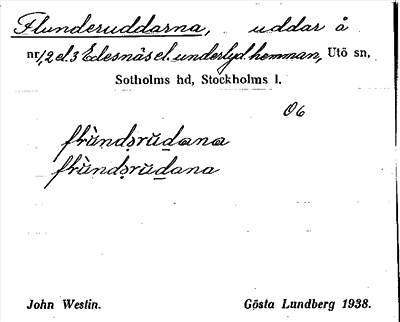 Flunderuddarna, uddar å
nr 1,2 el. 3 Edesnäs el. underlyd. hemman, Utö sn,
Sotholms hd, Stockholms l.
06
flùndərūdana
flùndərūdana
John Westin. Gösta Lundberg 1938.